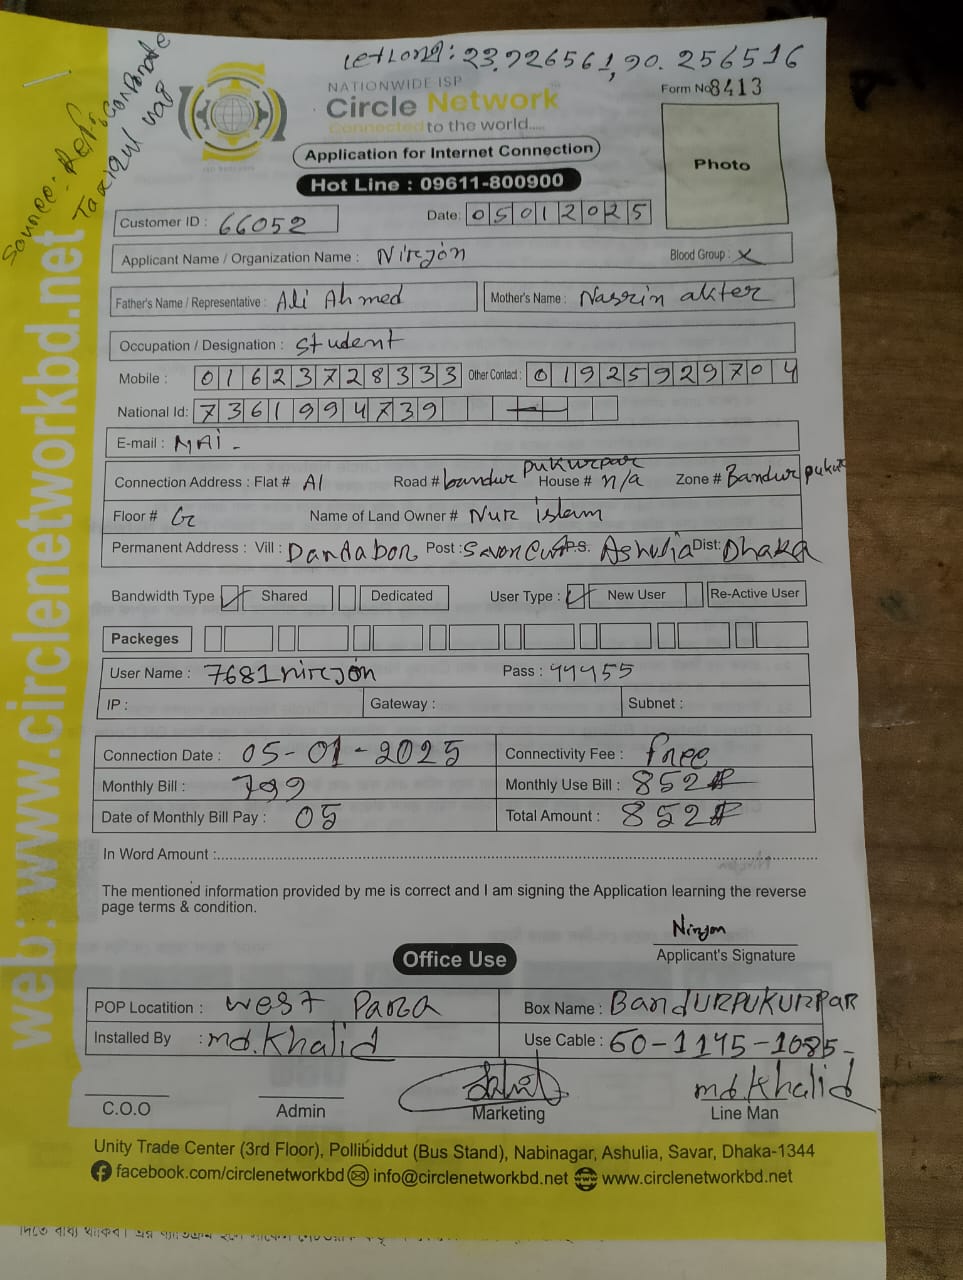 LetLong: 23.726561,90.256516
Source: Ref: Corporate
NATIONWIDE ISP
Circle Network
Connected to the world.....
Form No 8413
Photo
Application for Internet Connection
Hot Line : 09611-800900
Customer ID : 66052 Date: 05012025
Applicant Name / Organization Name : Nirjon Blood Group : X
Father's Name / Representative : Ali Ahmed Mother's Name : Nasrin akter
Occupation / Designation : Student
Mobile : 01623728333 Other Contact : 01925929704
National Id: 7361994739
E-mail : NAi -
Connection Address : Flat # A1 Road # bandur pukurpar House # n/a Zone # Bandur pukur
Floor # G Name of Land Owner # Nur islam
Permanent Address : Vill : Dandabor Post : P.S. Ashulia Dist: Dhaka
Bandwidth Type Shared Dedicated User Type : New User Re-Active User
Packeges
User Name : 7681nirjon Pass : 99955
IP : Gateway : Subnet :
Connection Date : 05-01-2025 Connectivity Fee : free
Monthly Bill : 799 Monthly Use Bill : 852
Date of Monthly Bill Pay : 05 Total Amount : 852
In Word Amount :
The mentioned information provided by me is correct and I am signing the Application learning the reverse
page terms & condition.
Nirjon
Applicant's Signature
Office Use
POP Locatition : West Para Box Name : BandURPUKURPAR
Installed By : md.Khalid Use Cable : 60-1145-1085-
md.Khalid
C.O.O Admin Marketing Line Man
Unity Trade Center (3rd Floor), Pollibiddut (Bus Stand), Nabinagar, Ashulia, Savar, Dhaka-1344
facebook.com/circlenetworkbd info@circlenetworkbd.net www.circlenetworkbd.net
web: www.circlenetworkbd.net